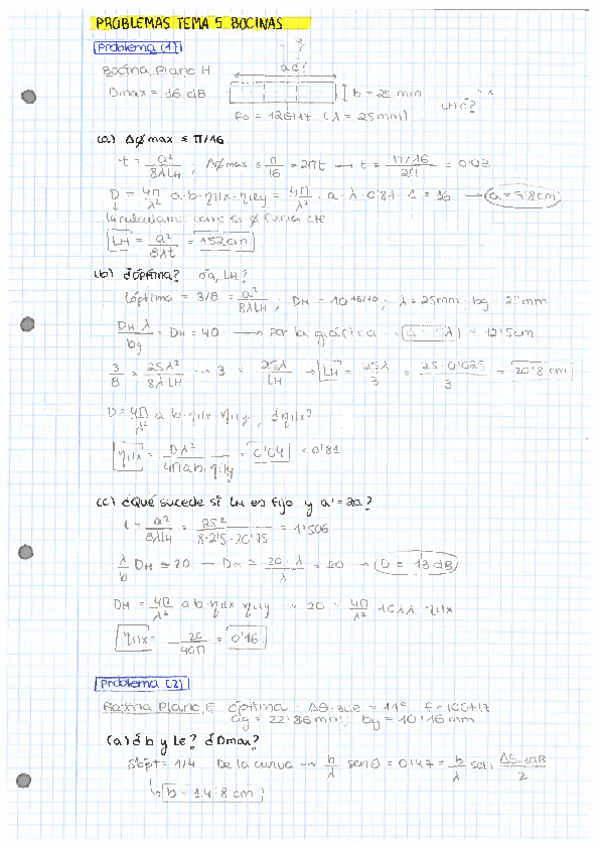 PROBLEMAS TEMA 5 BOCINAS
Problema (1)
Bocina, Plano H
a¿?
Dmax = 16 dB
b = 25 mm
f0 = 12GHz (λ = 25mm)
(a) Δφmax ≤ π/16
t = a²/8λLH ; Δφmax ≤ π/16 = 2πt → t = π/16 / 2π = 0'03
D = 4π/λ² a·b·ηilx·ηily = 4π/λ² · a·λ·0'81·1 = 16 → a = 5'8cm
LH = a²/8λt = 152cm
(b) ¿óptima? ¿a, LH?
tóptimo = 3/8 = a²/8λLH ; DH = 10^16/10 ; λ = 25mm bg = 25mm
DH·λ/bg = DH = 40 → Por la gráfica → a = 5λ = 12'5cm
3/8 = 25λ²/8λLH → 3 = 25λ/LH → LH = 25λ/3 = 25·0'025/3 = 20'8 cm
D = 4π/λ² a b ηilx ηily ; ¿ηilx?
ηilx = Dλ²/4πab·ηily = 0'64 < 0'81
(c) ¿Qué sucede si LH es fijo y a' = 2a?
t = a²/8λLH = 25²/8·2'5·20'75 = 1'506
λ/b DH ≃ 20 → DH ≃ 20·λ/λ = 20 → D = 13 dB
DH = 4π/λ² a b ηilx ηily → 20 = 4π/λ² 10λλ ηilx
ηilx = 20/40π = 0'16
Problema (2)
Bocina Plano E óptima Δθ-3dB = 11° f = 10GHz
ag = 22'86mm; bg = 10'16 mm
(a) ¿b y LE? ¿Dmax?
Sópt = 1/4 De la curva → b/λ senθ = 0'47 = b/λ sen Δθ-3dB/2
b = 14'8 cm